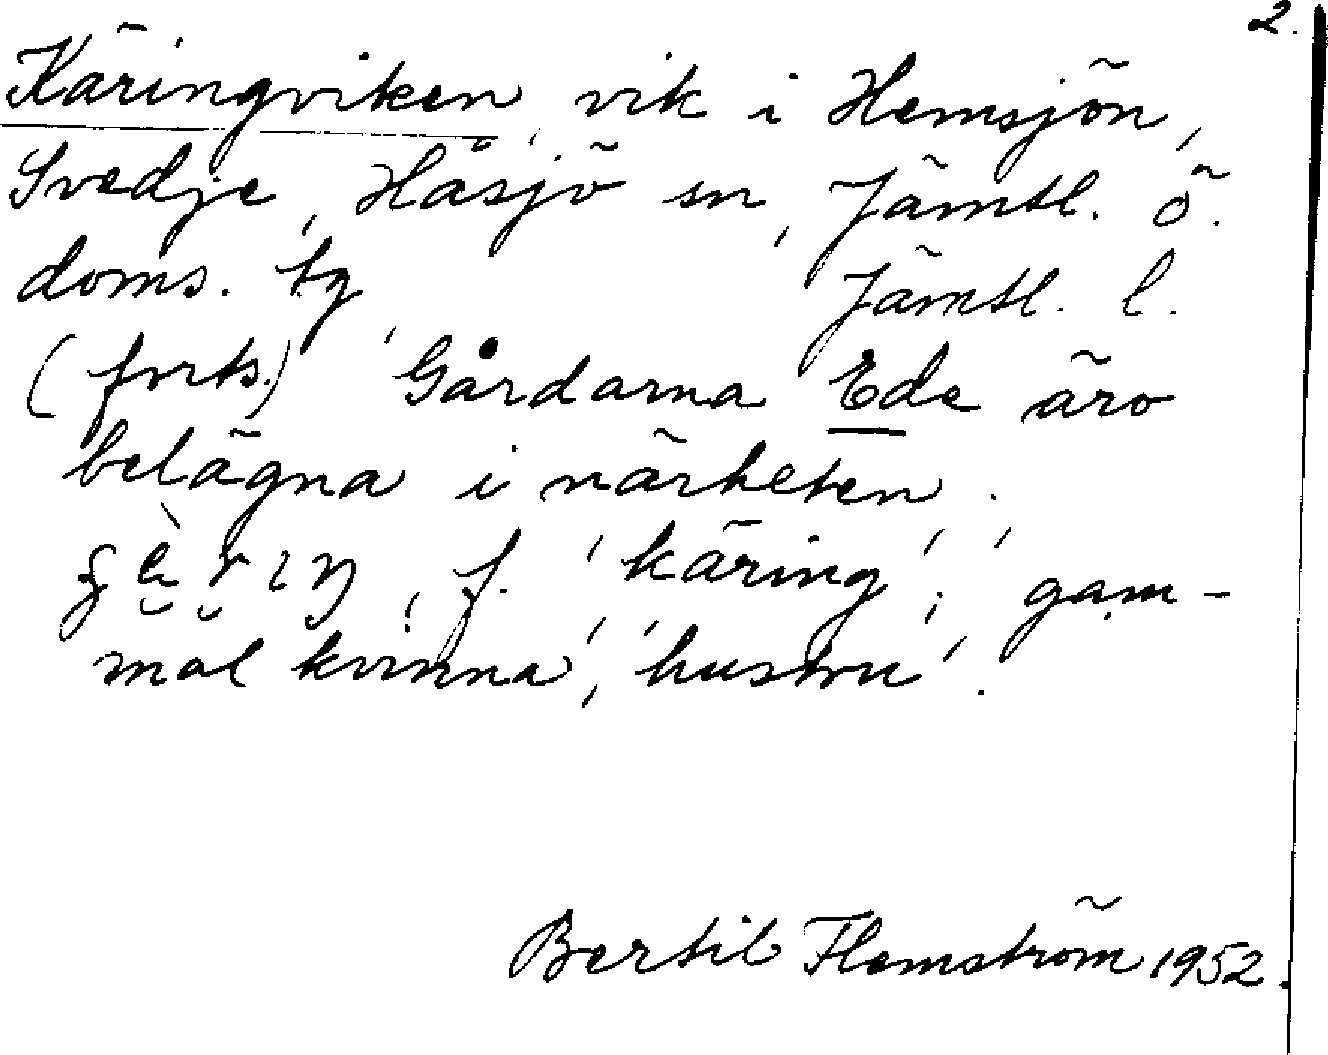 2.
Käringviken, vik i Hemsjön,
Svedje, Håsjö sn, Jämtl. ö.
doms. tg, Jämtl. l.
(forts.) Gårdarna Ede äro
belägna i närheten.
f. 'käring', 'gam-
mal kvinna', 'hustru'.
Bertil Flemström 1952.